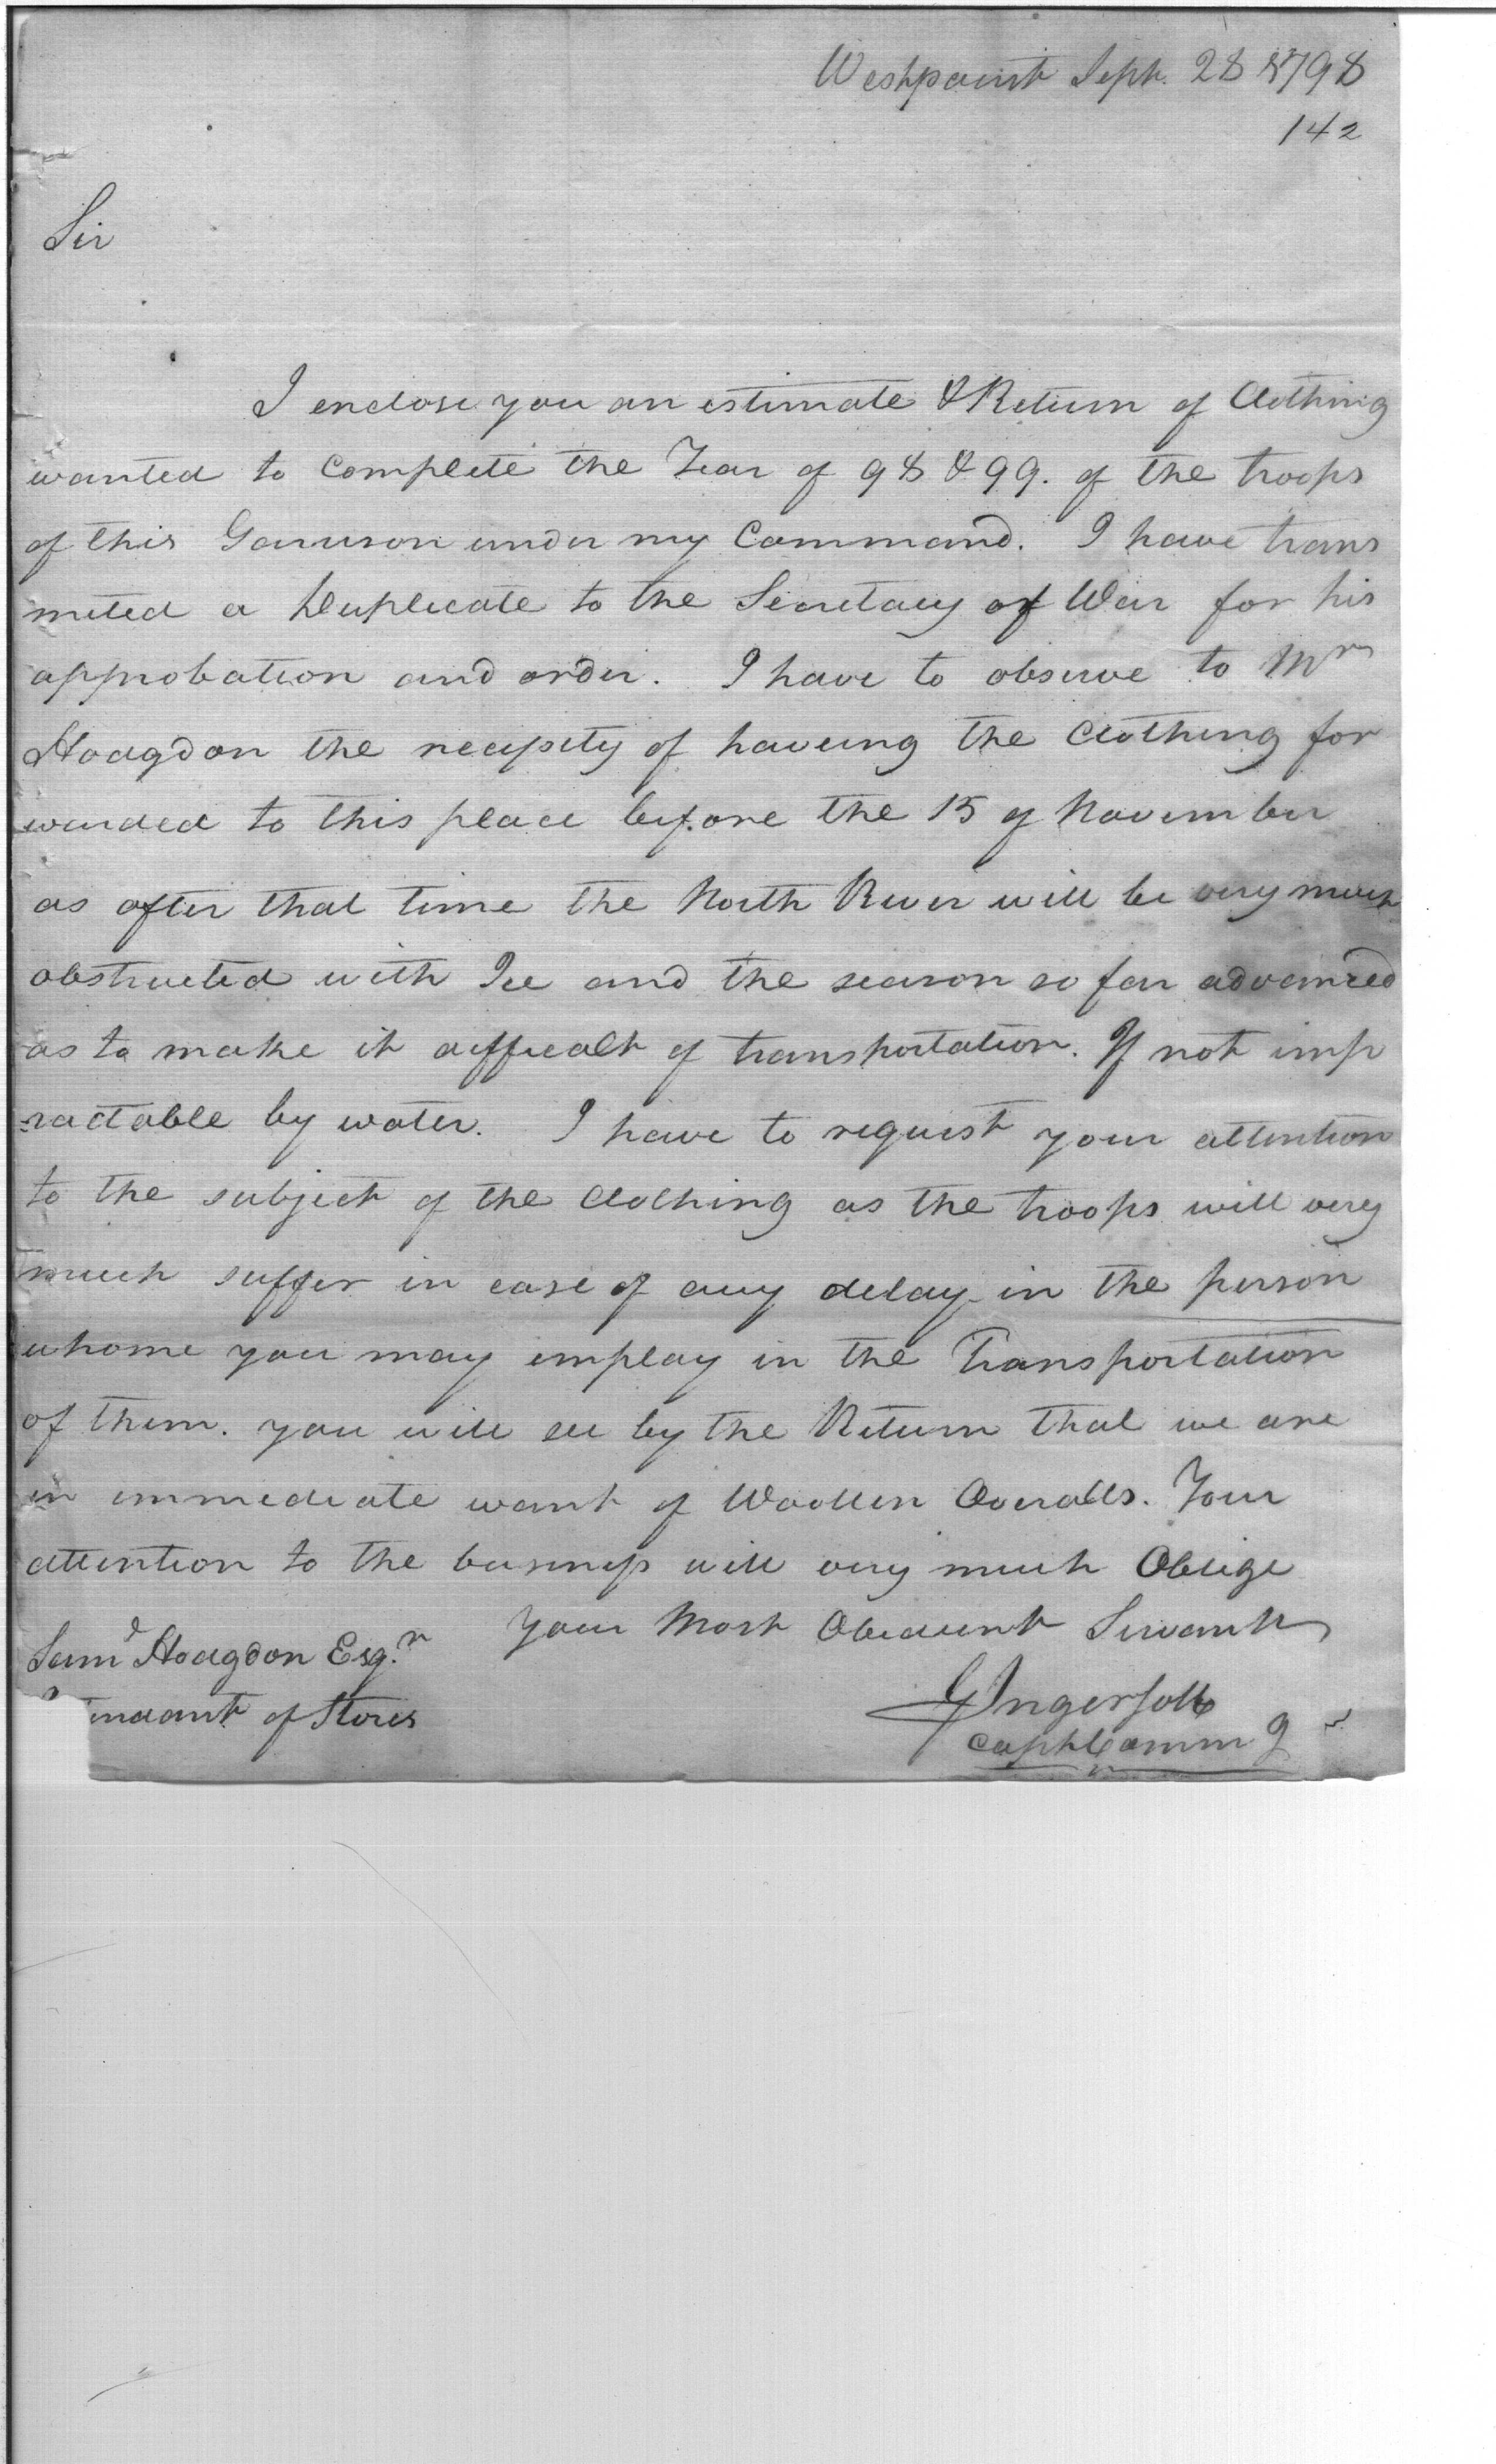 Westpoint Sept. 28 1798
142
Sir
I enclose you an estimate & Return of Clothing
wanted to Complete the Year of 98 & 99. of the troops
of this Garrison under my Command. I have trans
mited a Duplicate to the Secretary of War for his
approbation and order. I have to observe to Mr
Hodgdon the necessity of haveing the Clothing for
warded to this place before the 15 of November
as after that time the North River will be very much
obstructed with Ice and the season so far advanced
as to make it difficalt of transportation. If not imp
ractable by water. I have to request your attention
to the subject of the Clothing as the troops will very
much suffer in case of any delay in the person
whome you may employ in the Transportation
of them. you will see by the Return that we are
in immediate want of Woollen Overalls. Your
attention to the business will very much Oblige
Your Most Obedient Servant
Samd Hodgdon Esqr
endant of Stores
G Ingersoll
Capt Comm g